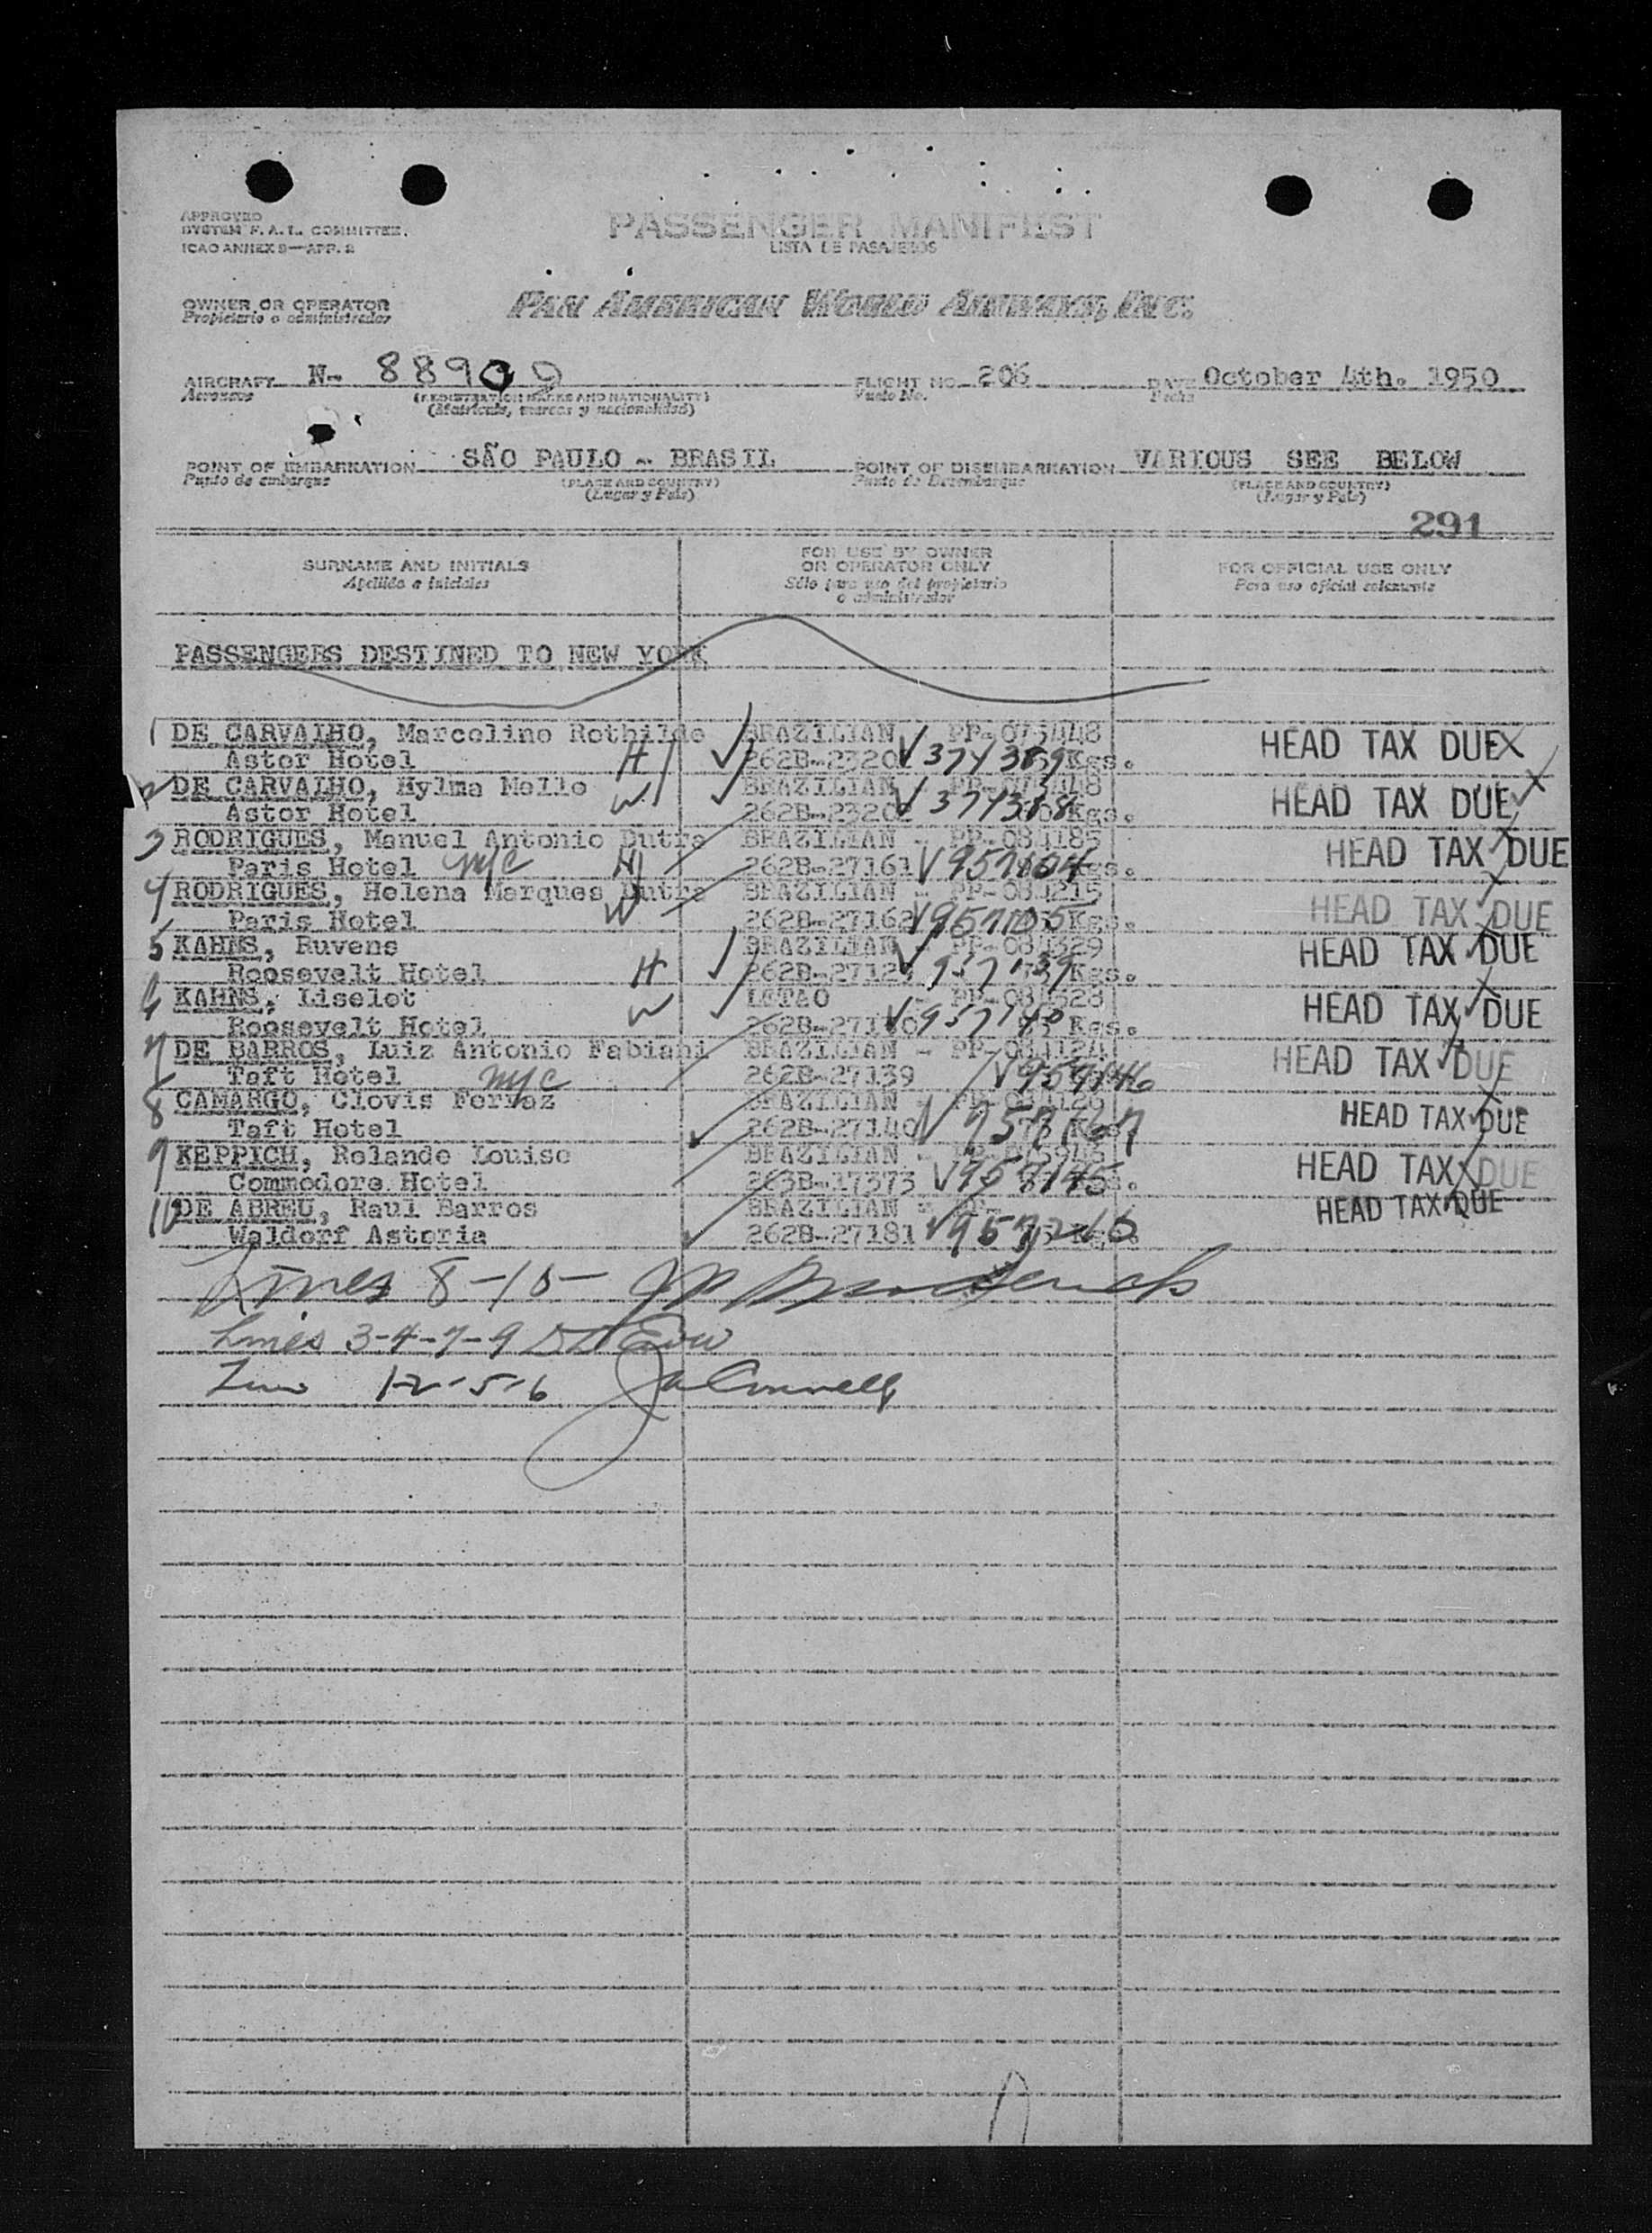 APPROVED
SYSTEM F. A. L. COMMITTEE.
ICAO ANNEX 9—APP. 2
PASSENGER MANIFEST
LISTA DE PASAJEROS
OWNER OR OPERATOR
Propietario o administrador
PAN AMERICAN WORLD AIRWAYS, INC.
AIRCRAFT N- 88900 FLIGHT NO. 206 DATE October 4th. 1950
Aeronave (REGISTRATION MARKS AND NATIONALITY) Vuelo No. Fecha
(Matricula, marcas y nacionalidad)
POINT OF EMBARKATION SÃO PAULO - BRASIL POINT OF DISEMBARKATION VARIOUS SEE BELOW
Punto de embarque (PLACE AND COUNTRY) Punto de Desembarque (PLACE AND COUNTRY)
(Lugar y País) (Lugar y País)
291
SURNAME AND INITIALS FOR USE BY OWNER OR OPERATOR ONLY FOR OFFICIAL USE ONLY
Apellido e iniciales Sólo para uso del propietario o administrador Para uso oficial solamente
PASSENGERS DESTINED TO NEW YORK
1 DE CARVALHO, Marcolino Rothilde BRAZILIAN PP-075448 HEAD TAX DUE
Astor Hotel H 262B-2320 374389 Kgs.
2 DE CARVALHO, Hylma Mello BRAZILIAN PP-075448 HEAD TAX DUE
Astor Hotel W 262B-2320 374388 Kgs.
3 RODRIGUES, Manuel Antonio Dutra BRAZILIAN - PP-084185 HEAD TAX DUE
Paris Hotel nyc H 262B-27161 957104
4 RODRIGUES, Helena Marques Dutra BRAZILIAN - PP-084215 HEAD TAX DUE
Paris Hotel W 262B-27162 957105 Kgs.
5 KAHNS, Ruvens BRAZILIAN PP-084329 HEAD TAX DUE
Roosevelt Hotel H 262B-2712 957139 Kgs.
6 KAHNS, Liselot LETAO - PP-084328 HEAD TAX DUE
Roosevelt Hotel W 262B-27170 957140 Kgs.
7 DE BARROS, Luiz Antonio Fabiani BRAZILIAN - PP-084124 HEAD TAX DUE
Taft Hotel nyc 262B-27139 957146
8 CAMARGO, Clovis Ferraz BRAZILIAN - PP-084126 HEAD TAX DUE
Taft Hotel 262B-27140
9 KEPPICH, Rolande Louise BRAZILIAN - HEAD TAX DUE
Commodore Hotel 263B-17373 957145
10 DE ABREU, Raul Barros BRAZILIAN - PP- HEAD TAX DUE
Waldorf Astoria 262B-27181 957210
Lines 8-10-
Lines 3-4-7-9
Lines 1-2-5-6